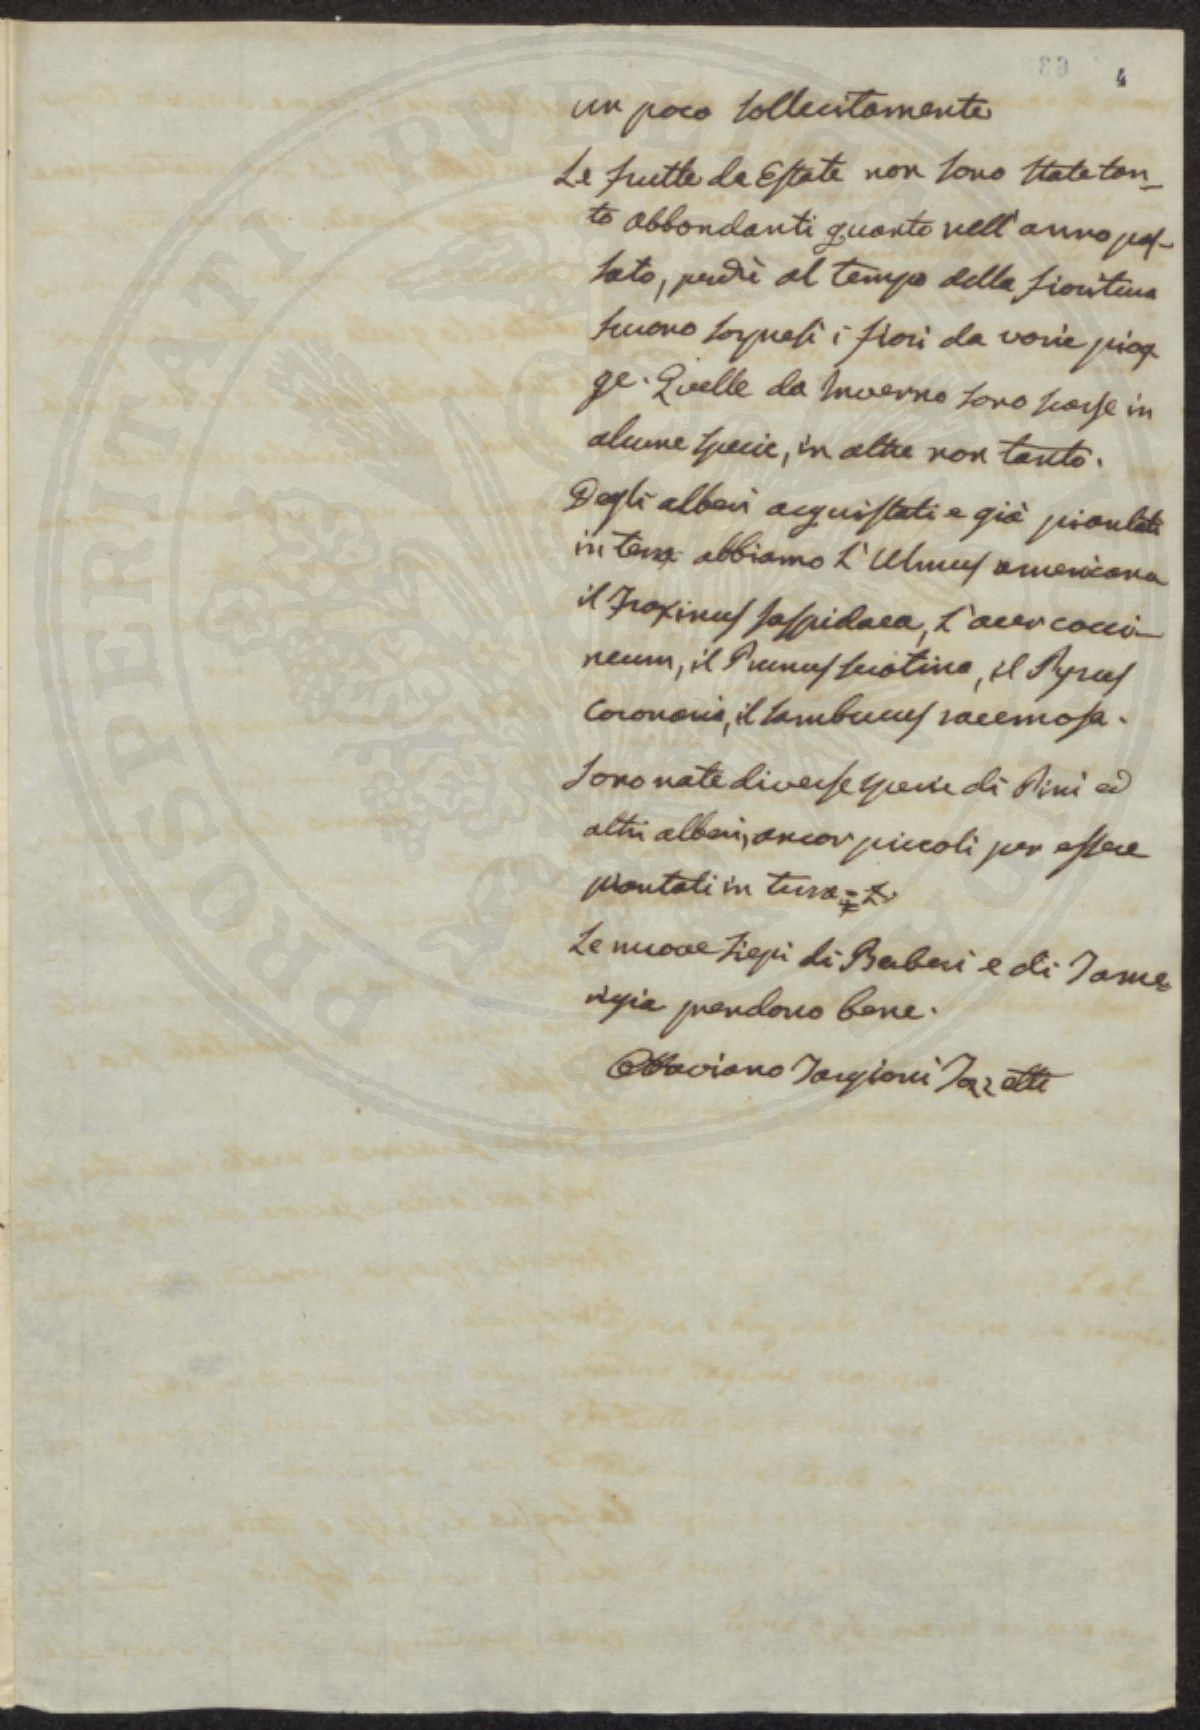 4
un poco sollecitamente
Le frutte da Estate non sono state tan-
to abbondanti quanto nell'anno pas-
sato, perchè al tempo della fioritura
furono sorpresi i fiori da varie piog
ge. Quelle da Inverno sono scarse in
alcune specie, in altre non tanto.
Degli alberi acquistati e già piantati
in terra abbiamo L'Ulmus americana
il Fraxinus, L'acer cocci-
neum, il Prunus serotina, il Pyrus
Coronaria, il Sambucus racemosa.
Sono nate diverse specie di Pini ed
altri alberi, ancor piccoli per essere
piantati in terra
Le nuove siepi di Berberi e di Tame-
rigia prendono bene.
Ottaviano Targioni Tozzetti
PROSPERITATI